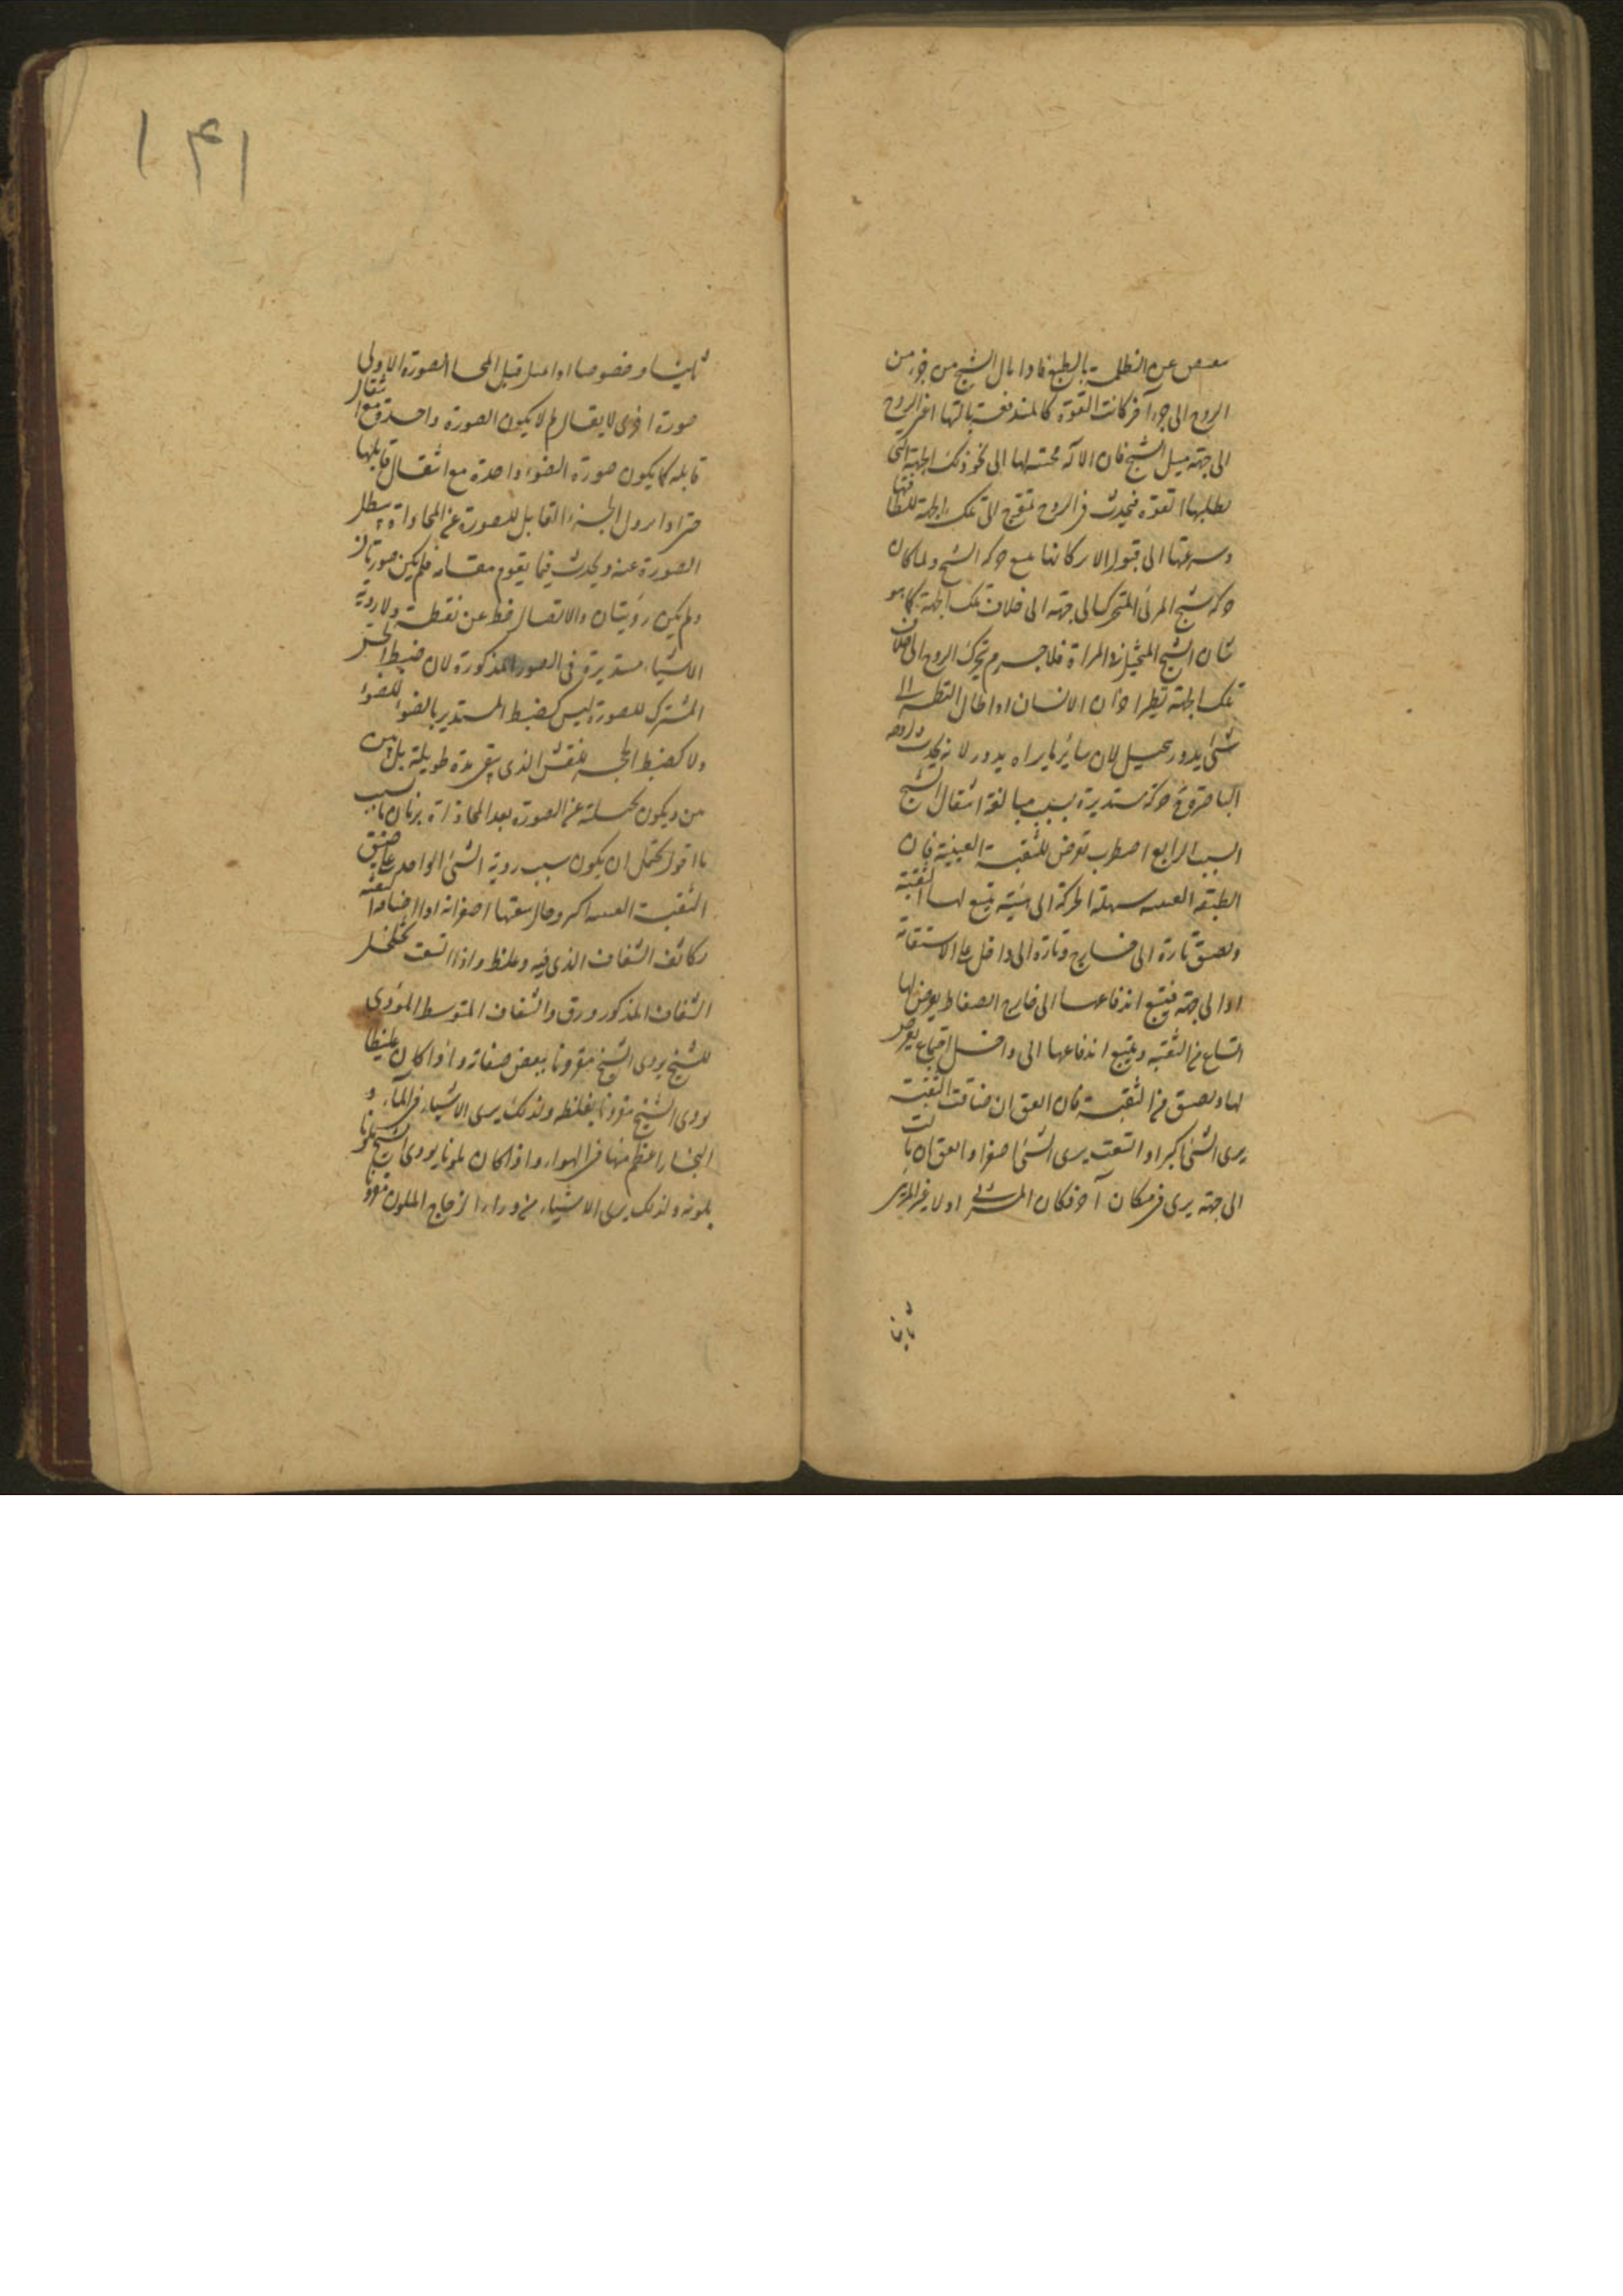 عن الظلمة بالطبع فاذا مال الشبح من جزء من
الروح الى جزء آخر كانت القوة كالمندفعة بالتها اعنى الروح
الى جهة ميل الشبح فان الآلة محتسه لها الى نحو ذلك الجهة التى
تطلبها القوة فيحدث فى الروح تموج الى تلك الجهة للطافتها
وسرعتها الى قبول الاركانها مع حركة الشبح ولما كان
حركة شبح المرئى المتحرك الى جهة الى خلاف تلك الجهة كما هو
شان الشبح المتخيل فى المراة فلا جرم تحرك الروح الى خلاف
تلك الجهة نظرا وان الانسان اذا اطال النظر الى
شئ يدور يتخيل لان سائر ما يراه يدور لانه يحدث فى روحه
الباصرة حركة مستديرة بسبب مبالغة انتقال الشبح
السبب الرابع اضطراب تعرض للثقبة العينية فان
الطبقة سهلة الحركة الى هيئة يتسع لها الثقبة
وتضيق تارة الى خارج وتارة الى داخل على الاستقامة
او الى جهة فيتبع اندفاعها الى خارج انضغاط يعرض لها
اتساع فى الثقبة ويتبع اندفاعها الى داخل اجتماع يعرض
لها وتضيق فى الثقبة فان اتفق ان ضاقت الثقبة
يرى الشئ اكبر او اتسعت يرى الشئ اصغر او اتفق ان مالت
الى جهة يرى فى مكان آخر فكان المرئى اولا غير المرئى
ثانيا
١٤١
ثانيا وخصوصا اذا تمثل قبل انمحاء الصورة الاولى
صورة اخرى لا يقال لم لا يكون الصورة واحدة مع انتقال
قابله كما يكون صورة الضوء واحدة مع انتقال قابلها
حتى اذا يزول الجزء القابل للصورة عن المحاذاة يبطل
الصورة عنه ويحدث فيما يقوم مقامه فلم يكن صورتان
ولم يكن رؤيتان والاتصال خط عن نقطة ولا رؤية
الاشياء مستديرة فى الصور المذكورة لان ضبط الحس
المشترك للصورة ليس كضبط المستدير بالضوء للضوء
ولا كضبط الحجر للنقش الذى يبقى مدة طويلة بل من
من ويكون تحليته عن الصورة بعد المحاذاة بزمان ما بسبب
ما اقول يحتمل ان يكون سبب رؤية الشئ الواحد على ضيق
الثقبة اكبر وحال سعتها اصغر انه اذا ضاقت
تكاثف الشفاف الذى فيه وغلظ واذا اتسعت تخلخل
الشفاف المذكور ورق والشفاف المتوسط المؤدى
للشبح يؤدى الشبح مقرونا ببعض صفاته واذا كان غليظا
يؤدى الشبح مقرونا بغلظه ولذلك يرى الاشياء فى الماء و
البخار اعظم منها فى الهواء واذا كان ملونا يؤدى الشبح ملونا
بلونه ولذلك يرى الاشياء من وراء الزجاج الملون مقرونا